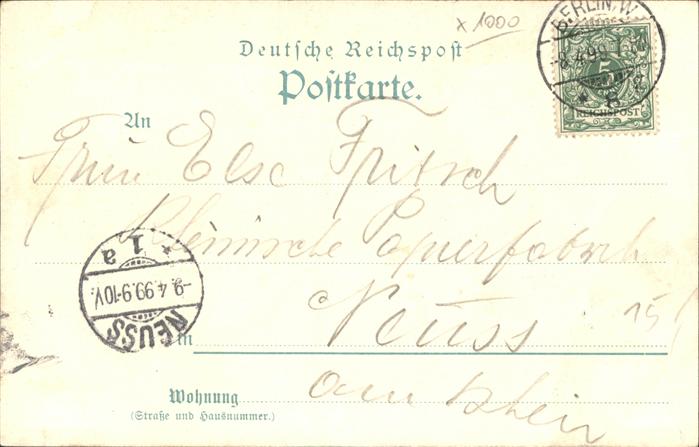 x 1000
BERLIN, W.
-8.4.99.
* 8
5
REICHSPOST
Deutsche Reichspost
Postkarte.
An
Frau Else Fritsch
Rheinische Papierfabrik
1 a
-9.4.99.9-10V.
NEUSS
Neuss
in
am Rhein
Wohnung
(Straße und Hausnummer.)